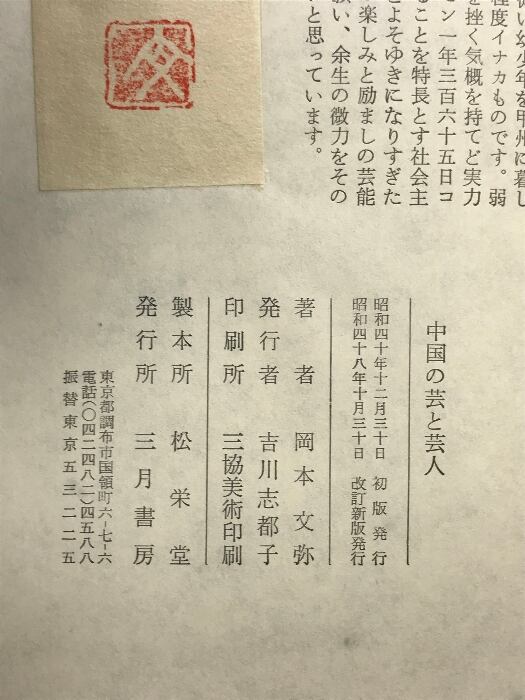 い幼少年を甲州に暮し
程度イナカものです。弱
を挫く気概を持てど実力
ン一年三百六十五日コ
ることを特長とす社会主
とよそゆきになりすぎた
楽しみと励ましの芸能
い、余生の微力をその
と思っています。
中国の芸と芸人
昭和四十年十二月三十日 初版発行
昭和四十八年十月三十日 改訂新版発行
著者 岡本文弥
発行者 吉川志都子
印刷所 三協美術印刷
製本所 松栄堂
発行所 三月書房
東京都調布市国領町六-七-六
電話(〇四二四八二)四五八八
振替東京五三二二五